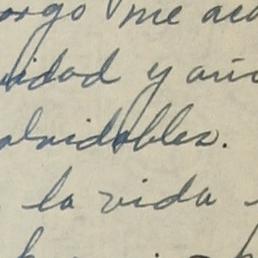 argo me aco
uidad y año
olvidables.
la vida